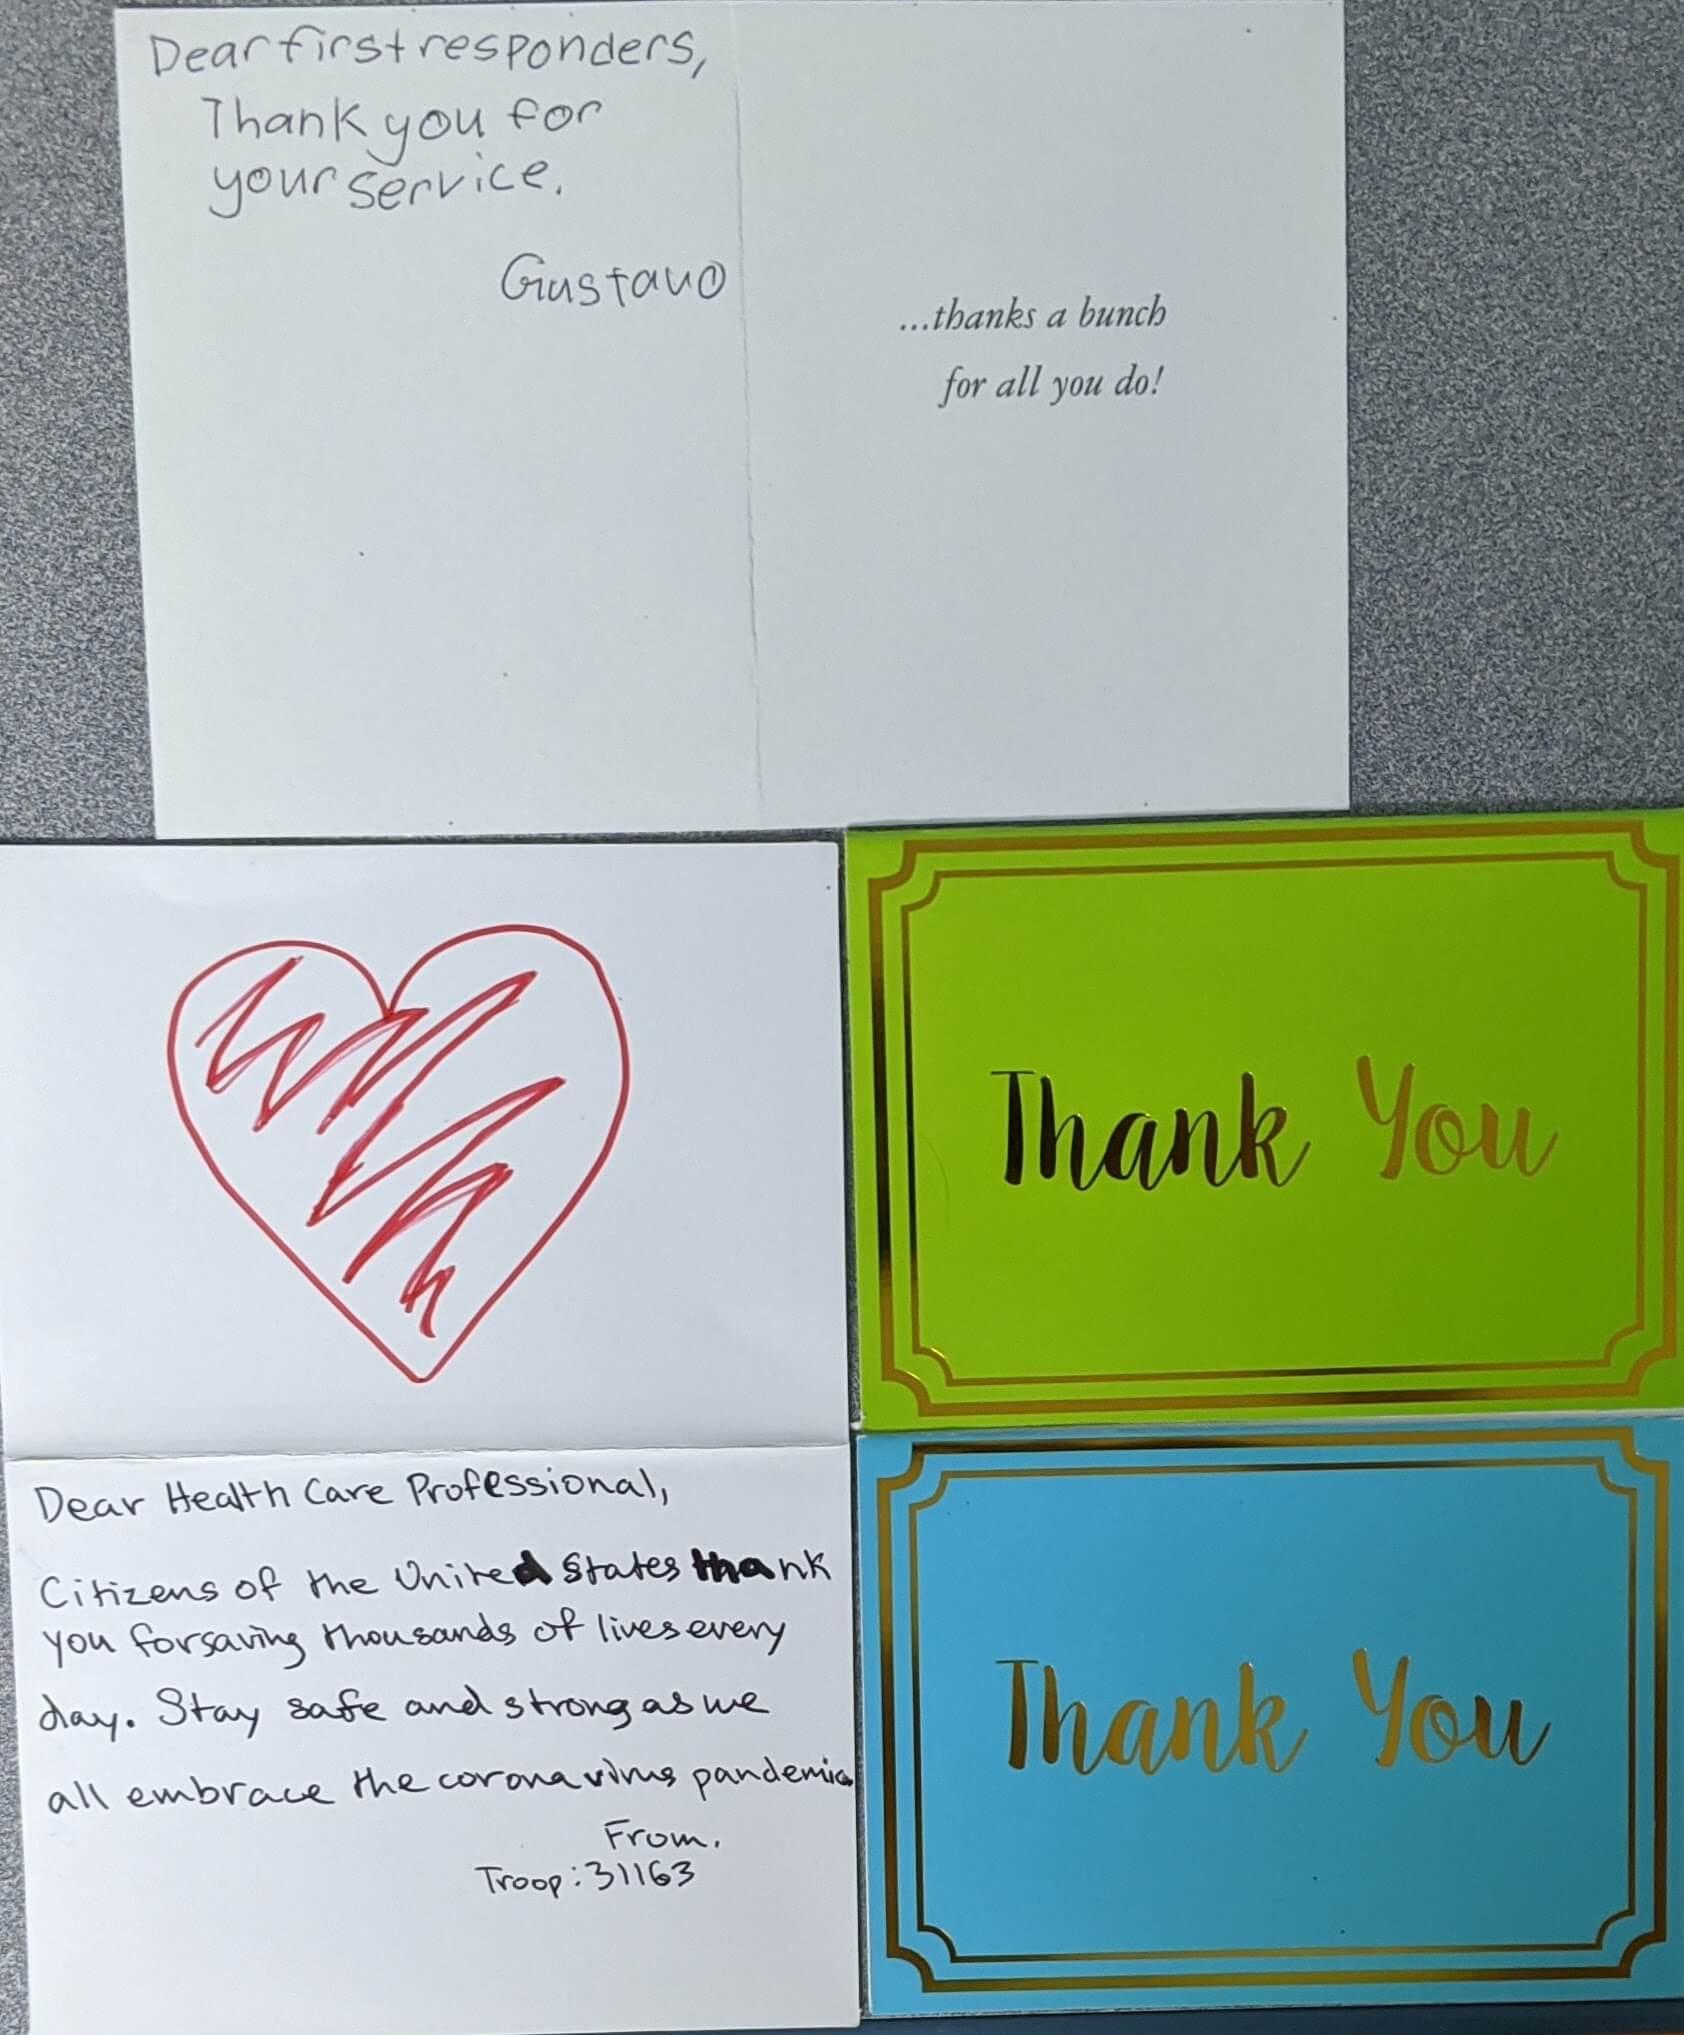 Dear first responders,
Thank you for
your service.
Gustavo
...thanks a bunch
for all you do!
Thank You
Dear Health Care Professional,
Citizens of the United States thank
you for saving thousands of lives every
day. Stay safe and strong as we
all embrace the coronavirus pandemic
From.
Troop: 31163
Thank You